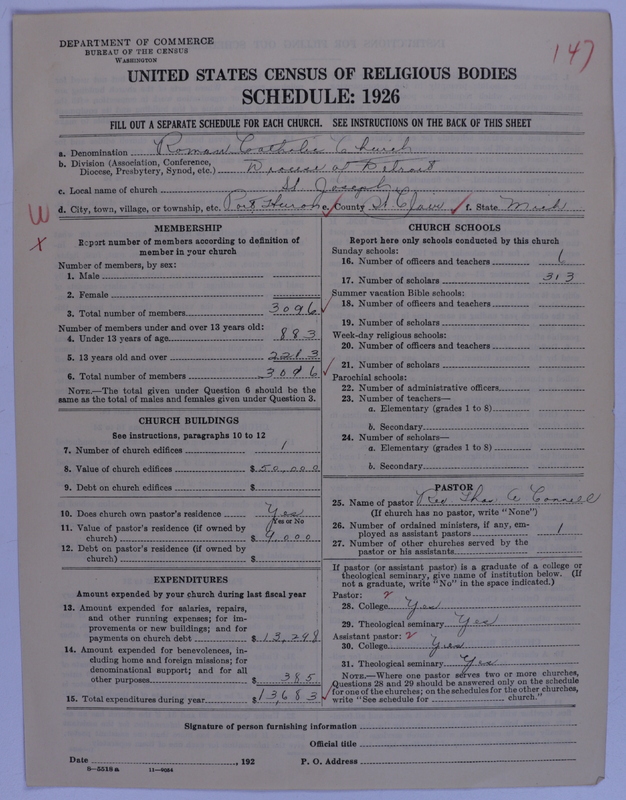 DEPARTMENT OF COMMERCE
BUREAU OF THE CENSUS
WASHINGTON
147
UNITED STATES CENSUS OF RELIGIOUS BODIES
SCHEDULE: 1926
FILL OUT A SEPARATE SCHEDULE FOR EACH CHURCH. SEE INSTRUCTIONS ON THE BACK OF THIS SHEET
a. Denomination Roman Catholic Church
b. Division (Association, Conference, Diocese, Presbytery, Synod, etc.) Diocese of Detroit
c. Local name of church St Joseph
W d. City, town, village, or township, etc. Port Huron e. County St Clair f. State Mich
x
MEMBERSHIP
Report number of members according to definition of member in your church
Number of members, by sex:
1. Male
2. Female
3. Total number of members 3096
Number of members under and over 13 years old:
4. Under 13 years of age 883
5. 13 years old and over 2213
6. Total number of members 3096
NOTE.—The total given under Question 6 should be the same as the total of males and females given under Question 3.
CHURCH BUILDINGS
See instructions, paragraphs 10 to 12
7. Number of church edifices 1
8. Value of church edifices $50,000
9. Debt on church edifices $
10. Does church own pastor's residence Yes
Yes or No
11. Value of pastor's residence (if owned by church) $ 9,000
12. Debt on pastor's residence (if owned by church) $
EXPENDITURES
Amount expended by your church during last fiscal year
13. Amount expended for salaries, repairs, and other running expenses; for improvements or new buildings; and for payments on church debt $13,298
14. Amount expended for benevolences, including home and foreign missions; for denominational support; and for all other purposes $ 385
15. Total expenditures during year $13,683
CHURCH SCHOOLS
Report here only schools conducted by this church
Sunday schools:
16. Number of officers and teachers 1
17. Number of scholars 313
Summer vacation Bible schools:
18. Number of officers and teachers
19. Number of scholars
Week-day religious schools:
20. Number of officers and teachers
21. Number of scholars
Parochial schools:
22. Number of administrative officers
23. Number of teachers—
a. Elementary (grades 1 to 8)
b. Secondary
24. Number of scholars—
a. Elementary (grades 1 to 8)
b. Secondary
PASTOR
25. Name of pastor Rev Thos A Connell
(If church has no pastor, write "None")
26. Number of ordained ministers, if any, employed as assistant pastors 1
27. Number of other churches served by the pastor or his assistants
If pastor (or assistant pastor) is a graduate of a college or theological seminary, give name of institution below. (If not a graduate, write "No" in the space indicated.)
Pastor: 2
28. College Yes
29. Theological seminary Yes
Assistant pastor: 2
30. College Yes
31. Theological seminary Yes
NOTE.—Where one pastor serves two or more churches, Questions 28 and 29 should be answered only on the schedule for one of the churches; on the schedules for the other churches, write "See schedule for church."
Signature of person furnishing information
Official title
Date , 192 P. O. Address
8—5518a 11—9084